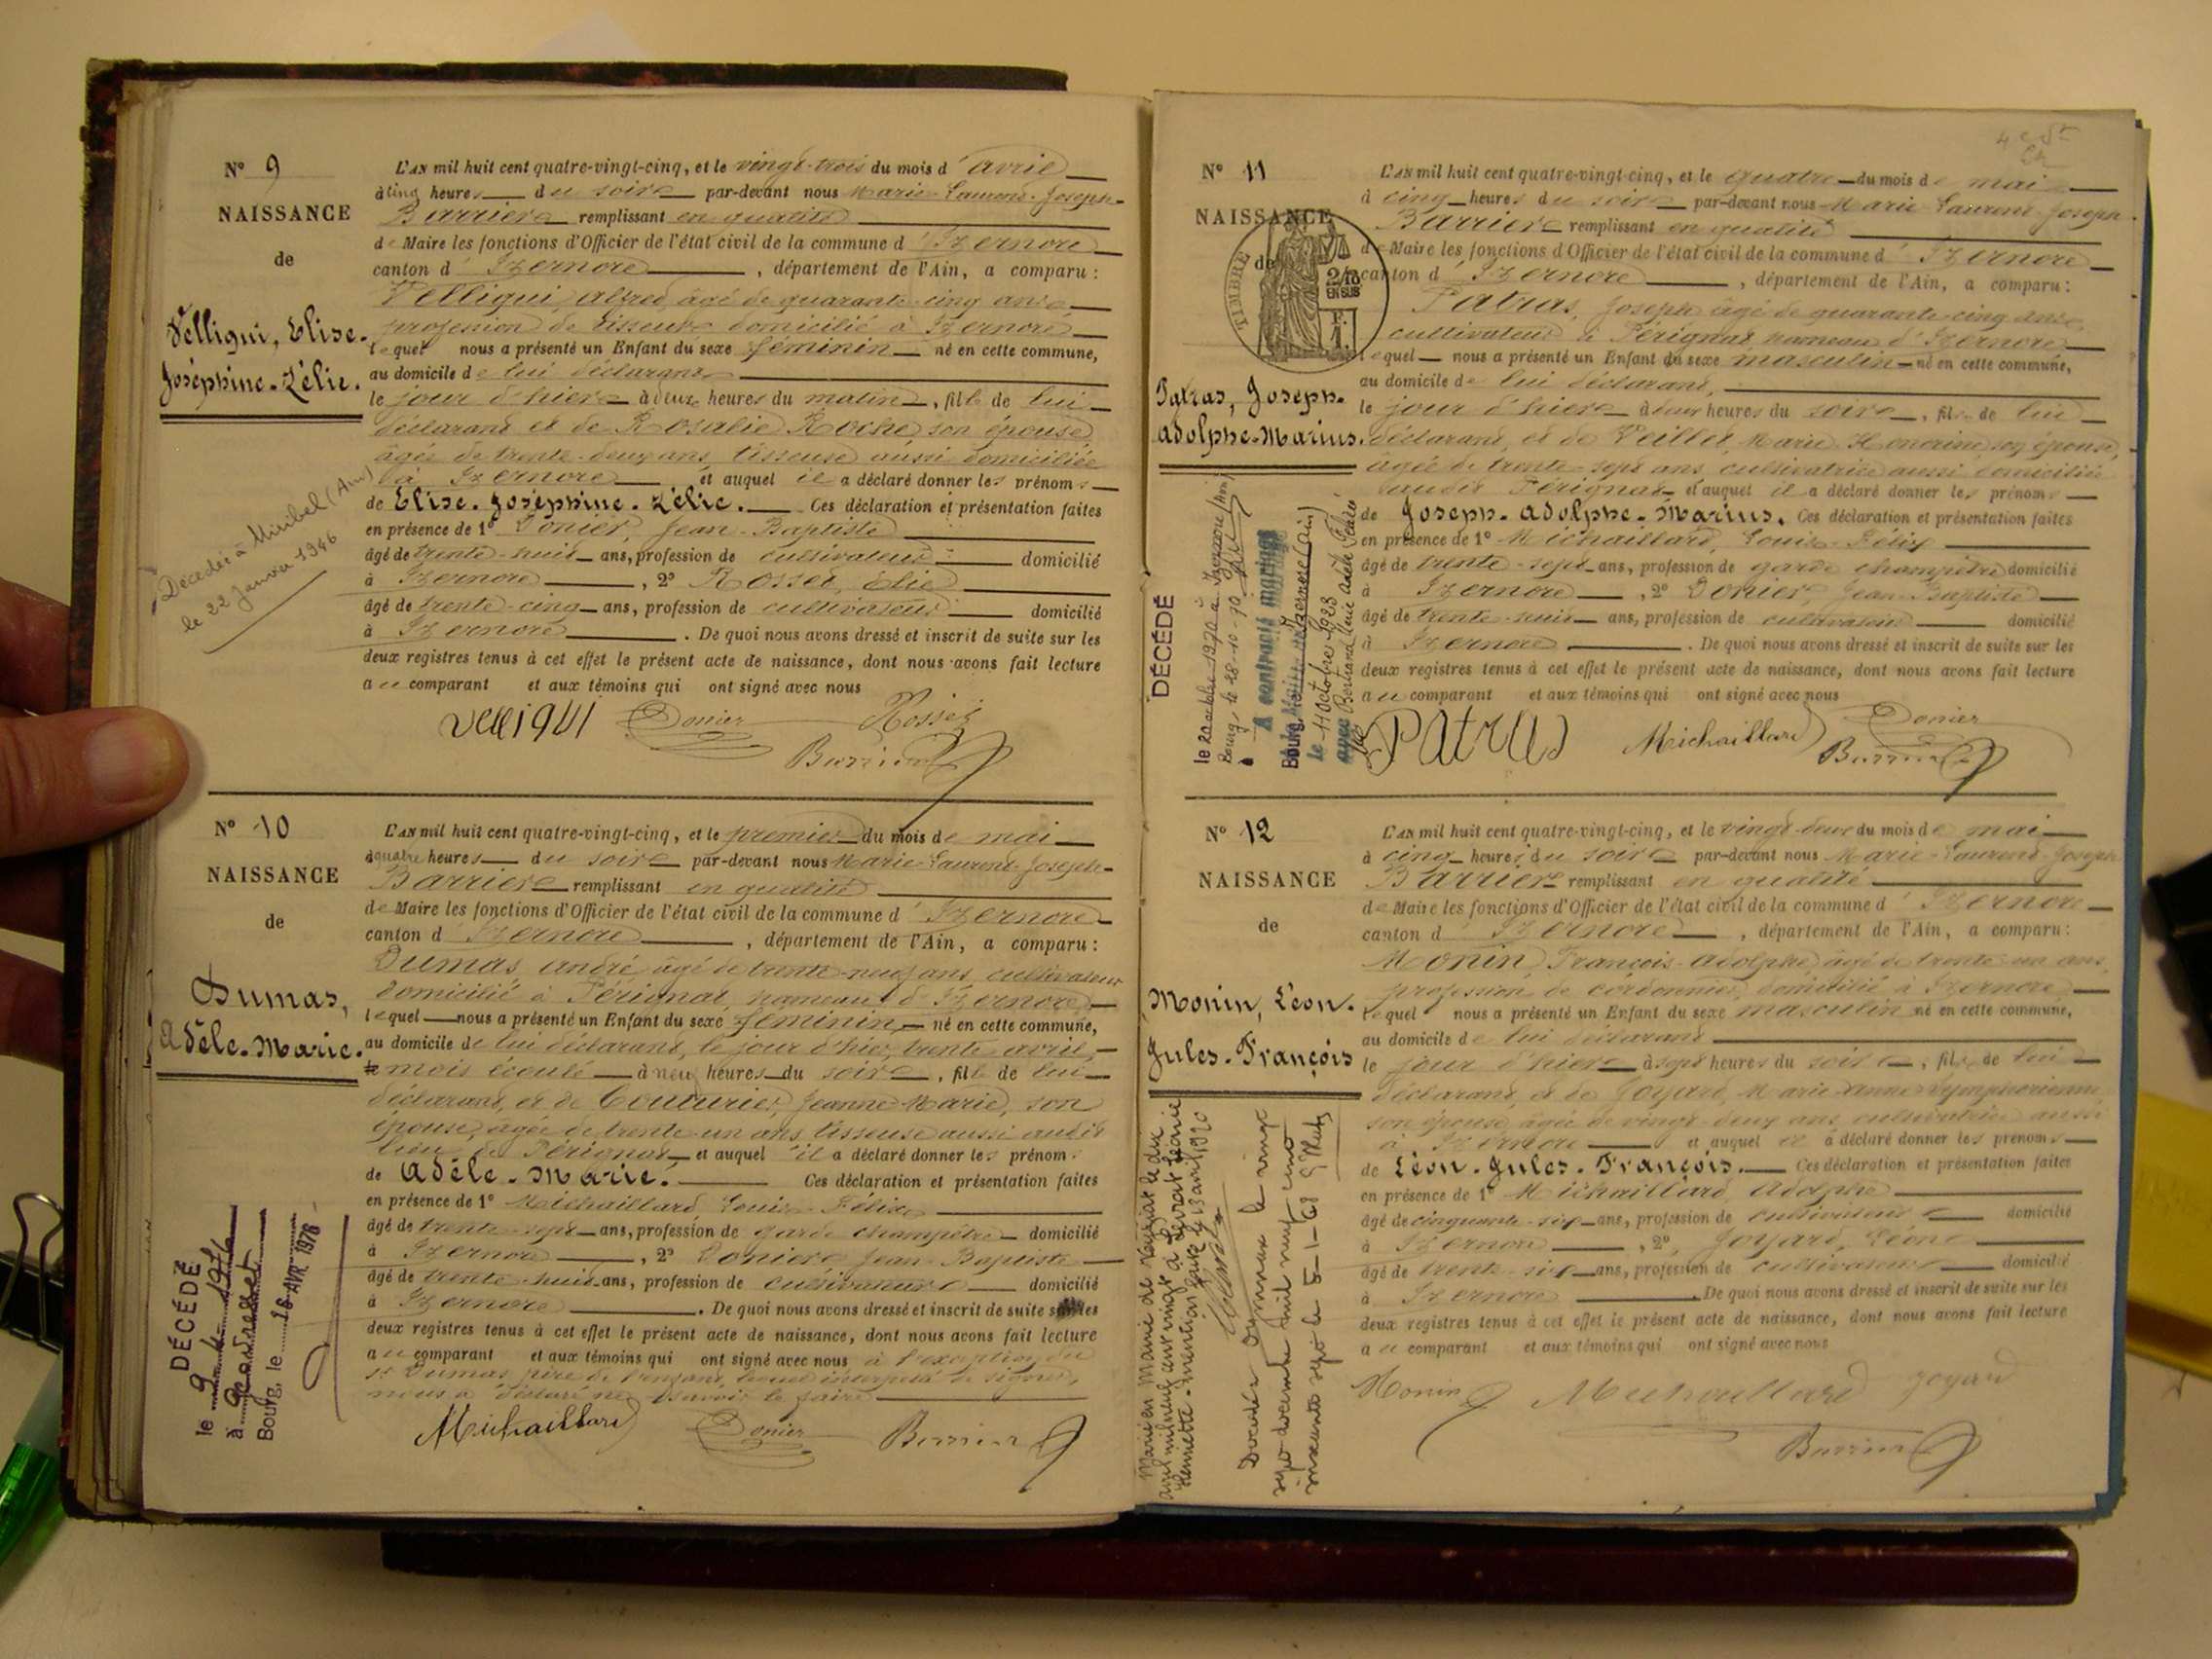 N° 9
NAISSANCE
de
Velliqui, Elise-
Joséphine-Zélie.
Décédée à Miribel (Ain)
le 22 janvier 1946
L'AN mil huit cent quatre-vingt-cinq, et le vingt-trois du mois d'avril
à cinq heures du soir par-devant nous Marie-Laurent-Joseph-
Barrier remplissant en qualité
de Maire les fonctions d'Officier de l'état civil de la commune d'Izernore
canton d'Izernore, département de l'Ain, a comparu:
Velliqui, alfred, âgé de quarante-cinq ans
profession de tisseur domicilié à Izernore
lequel nous a présenté un Enfant du sexe féminin né en cette commune,
au domicile de lui déclarant
le jour d'hier à deux heures du matin, fille de lui
déclarant et de Rosalie Roche, son épouse
âgée de trente-deux ans, tisseuse aussi domiciliée
à Izernore et auquel il a déclaré donner les prénoms
de Elise-Joséphine-Zélie. Ces déclaration et présentation faites
en présence de 1° Donier, Jean-Baptiste
âgé de trente-huit ans, profession de cultivateur domicilié
à Izernore, 2° Rosset, Elie
âgé de trente-cinq ans, profession de cultivateur domicilié
à Izernore. De quoi nous avons dressé et inscrit de suite sur les
deux registres tenus à cet effet le présent acte de naissance, dont nous avons fait lecture
au comparant et aux témoins qui ont signé avec nous
Donier Rosset
Barrier
N° 10
NAISSANCE
de
Dumas,
Adèle-Marie.
DÉCÉDÉ
le 9-4-1976
à
Bourg, le 16 AVR 1976
L'AN mil huit cent quatre-vingt-cinq, et le premier du mois de mai
à quatre heures du soir par-devant nous Marie-Laurent-Joseph-
Barrier remplissant en qualité
de Maire les fonctions d'Officier de l'état civil de la commune d'Izernore
canton d'Izernore, département de l'Ain, a comparu:
Dumas, andré, âgé de trente-neuf ans, cultivateur
domicilié à Pérignat, hameau d'Izernore,
lequel nous a présenté un Enfant du sexe féminin, né en cette commune,
au domicile de lui déclarant, le jour d'hier, trente avril,
mois écoulé à neuf heures du soir, fille de lui
déclarant, et de Couturier, Jeanne Marie, son
épouse, âgée de trente-un ans tisseuse aussi audit
lieu de Pérignat et auquel il a déclaré donner les prénom
de Adèle-Marie. Ces déclaration et présentation faites
en présence de 1° Michaillard, Louis-Félix
âgé de trente-sept ans, profession de garde champêtre domicilié
à Izernore, 2° Donier Jean-Baptiste
âgé de trente-huit ans, profession de cultivateur domicilié
à Izernore. De quoi nous avons dressé et inscrit de suite sur les
deux registres tenus à cet effet le présent acte de naissance, dont nous avons fait lecture
au comparant et aux témoins qui ont signé avec nous à l'exception du
sr Dumas père de l'enfant, lequel interpellé de signer,
nous a déclaré ne savoir le faire
Michaillard Donier Barrier
N° 11
NAISSANCE
de
TIMBRE
2/10
EN SUS
Patras, Joseph-
adolphe-Marius.
DÉCÉDÉ
Bourg, le 28-10-70
A contracté mariage
à Izernore (Ain)
le 11 Octobre 1928
avec Bertrand Marie
L'AN mil huit cent quatre-vingt-cinq, et le quatre du mois de mai
à cinq heures du soir par-devant nous Marie-Laurent-Joseph-
Barrier remplissant en qualité
de Maire les fonctions d'Officier de l'état civil de la commune d'Izernore
canton d'Izernore, département de l'Ain, a comparu:
Patras, Joseph âgé de quarante-cinq ans,
cultivateur à Pérignat hameau d'Izernore
lequel nous a présenté un Enfant du sexe masculin né en cette commune,
au domicile de lui déclarant,
le jour d'hier à deux heures du soir, fils de lui
déclarant, et de Veillet, Marie Honorine, son épouse,
âgée de trente-sept ans, cultivatrice aussi domiciliée
audit Pérignat et auquel il a déclaré donner les prénoms
de Joseph-adolphe-Marius. Ces déclaration et présentation faites
en présence de 1° Michaillard, Louis-Félix
âgé de trente-sept ans, profession de garde champêtre domicilié
à Izernore, 2° Donier, Jean-Baptiste
âgé de trente-huit ans, profession de cultivateur domicilié
à Izernore. De quoi nous avons dressé et inscrit de suite sur les
deux registres tenus à cet effet le présent acte de naissance, dont nous avons fait lecture
au comparant et aux témoins qui ont signé avec nous
Patras Michaillard Donier
Barrier
N° 12
NAISSANCE
de
Monin, Léon-
Jules-François
L'AN mil huit cent quatre-vingt-cinq, et le vingt-deux du mois de mai
à cinq heures du soir par-devant nous Marie-Laurent-Joseph
Barrier remplissant en qualité
de Maire les fonctions d'Officier de l'état civil de la commune d'Izernore
canton d'Izernore, département de l'Ain, a comparu:
Monin, François-adolphe, âgé de trente-un ans,
profession de cordonnier, domicilié à Izernore,
lequel nous a présenté un Enfant du sexe masculin né en cette commune,
au domicile de lui déclarant
le jour d'hier à sept heures du soir, fils de lui
déclarant, et de Joyard, Marie-anne-Symphorienne
son épouse âgée de vingt-deux ans, cultivatrice aussi
à Izernore et auquel il a déclaré donner les prénoms
de Léon-Jules-François. Ces déclaration et présentation faites
en présence de 1° Michaillard, Adolphe
âgé de cinquante-six ans, profession de cultivateur domicilié
à Izernore, 2° Joyard, Léon
âgé de trente-six ans, profession de cultivateur domicilié
à Izernore. De quoi nous avons dressé et inscrit de suite sur les
deux registres tenus à cet effet le présent acte de naissance, dont nous avons fait lecture
au comparant et aux témoins qui ont signé avec nous
Monin Michaillard Joyard
Barrier